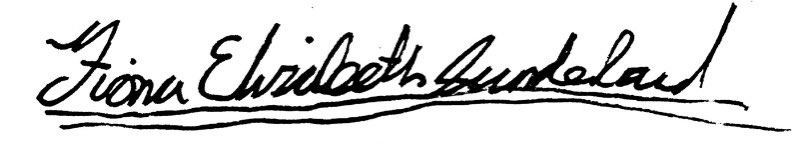 Fiona Elizabeth Sundeland